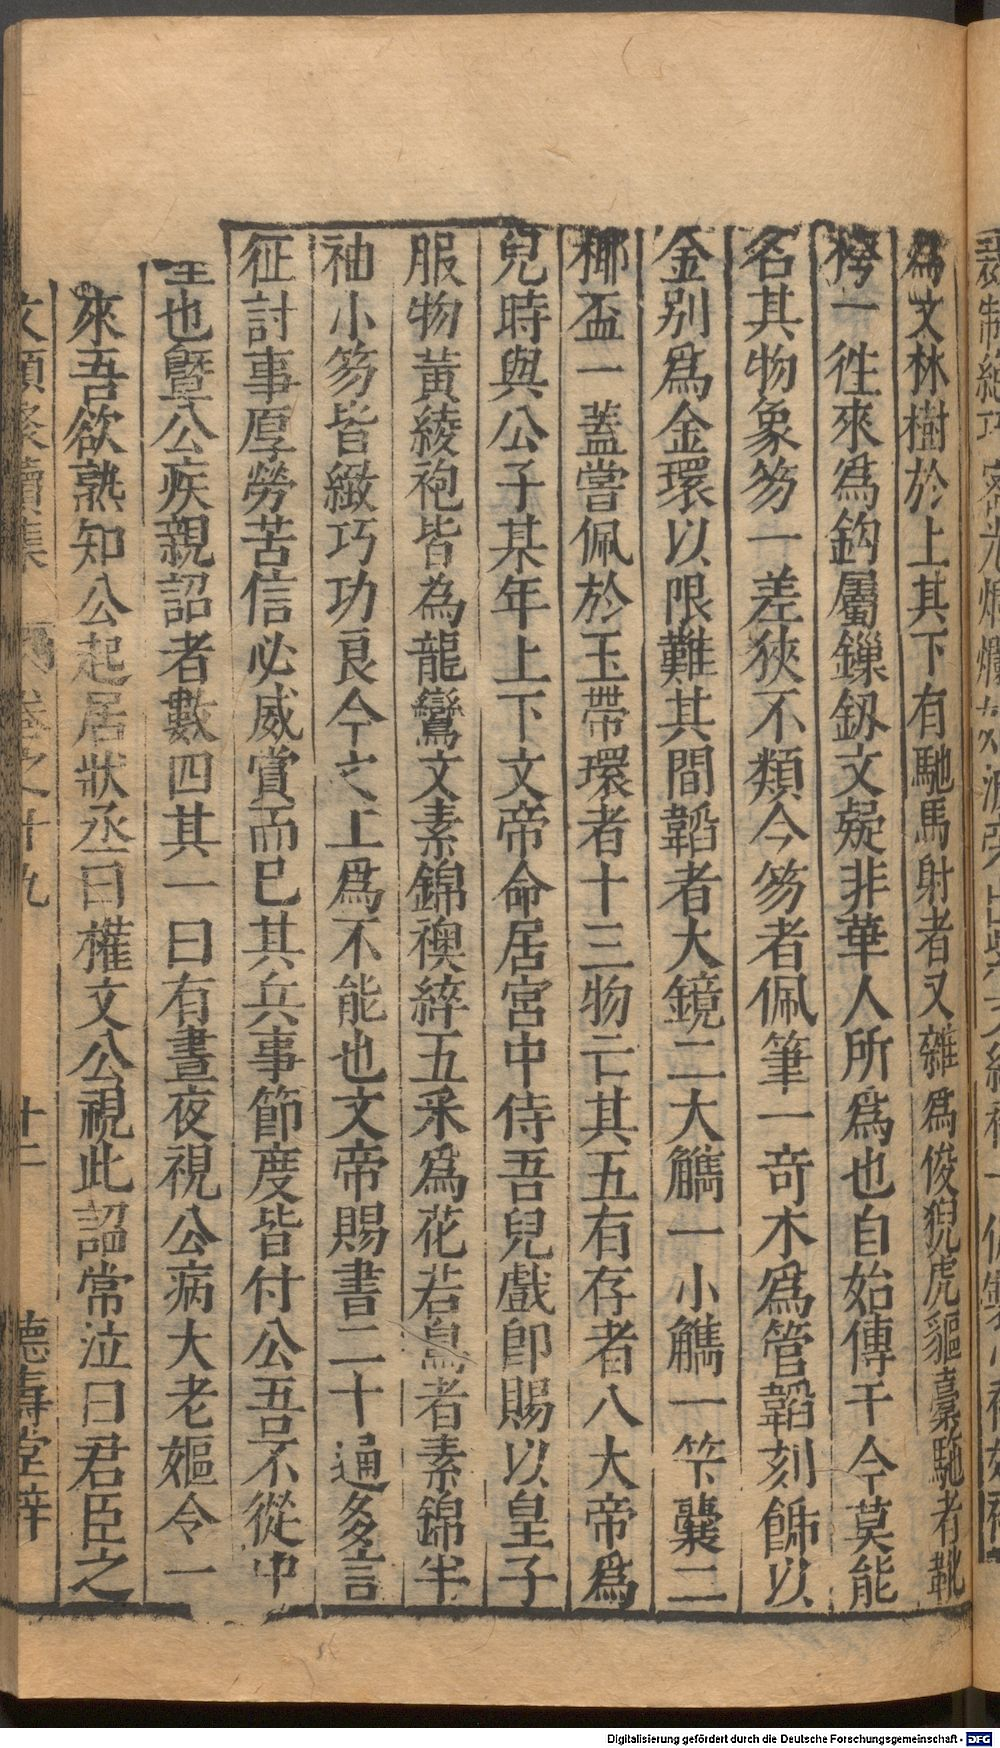 為文林樹於上其下有馳馬射者又雜為俊猊虎貙橐駞者靴
袴一徃來為鈎屬鏁釼文疑非華人所為也自始傳干今莫能
名其物象笏一差狹不類今笏者佩筆一竒木為管韜刻餙以
金別為金環以限難其間韜者大鏡二大觿一小觿一笇囊二
椰盃一蓋嘗佩於玉帶環者十三物亡其五有存者八大帝為
兒時與公子某年上下文帝命居宮中侍吾兒戲卽賜以皇子
服物黃綾袍皆為龍鸞文素錦襖綷五釆為花若鳥者素錦半
袖小笏皆緻巧功良今之上為不能也文帝賜書二十通多言
征討事厚勞苦信必威賞而巳其兵事節度皆付公吾不從中
也曁公疾親詔者數四其一曰有晝夜視公病大老嫗令一
來吾欲熟知公起居狀丞曰權文公視此詔常泣曰君臣之
文類 續集 卷之十九 十二 德壽堂梓
德壽堂梓